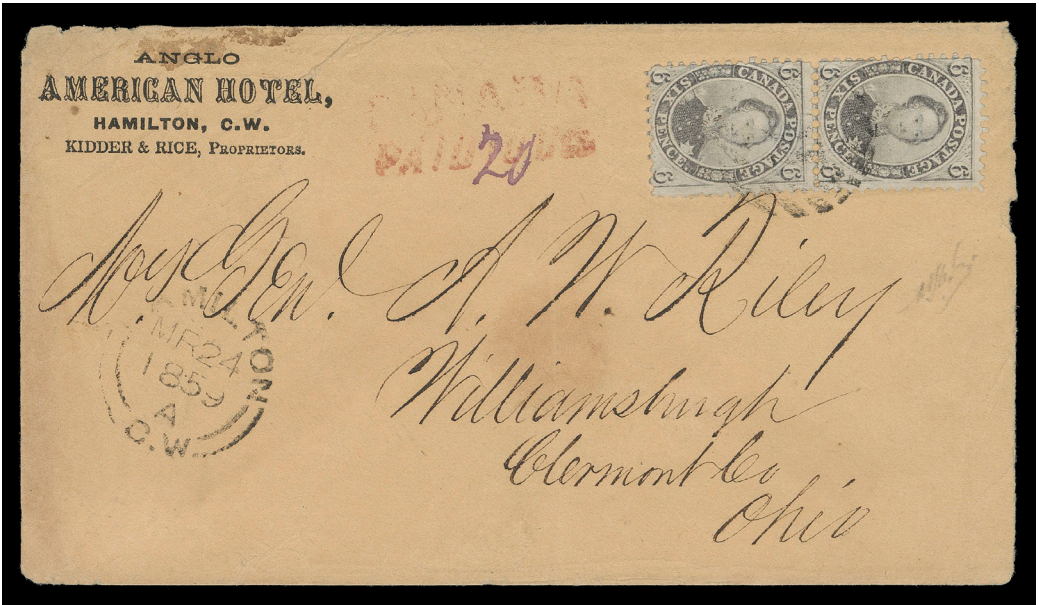 ANGLO
AMERICAN HOTEL,
HAMILTON, C.W.
KIDDER & RICE, PROPRIETORS.
PAID 20
6 CANADA POSTAGE 6
6 SIX PENCE 6
6 CANADA POSTAGE 6
6 SIX PENCE 6
A. W. Riley
Williamsburgh
Clermont Co
Ohio
MILTON
MR 24
1859
A
C.W.